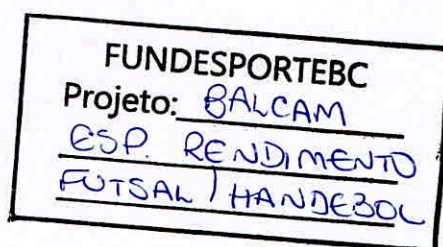 FUNDESPORTEBC
Projeto: BALCAM
ESP. RENDIMENTO
FUTSAL / HANDEBOL